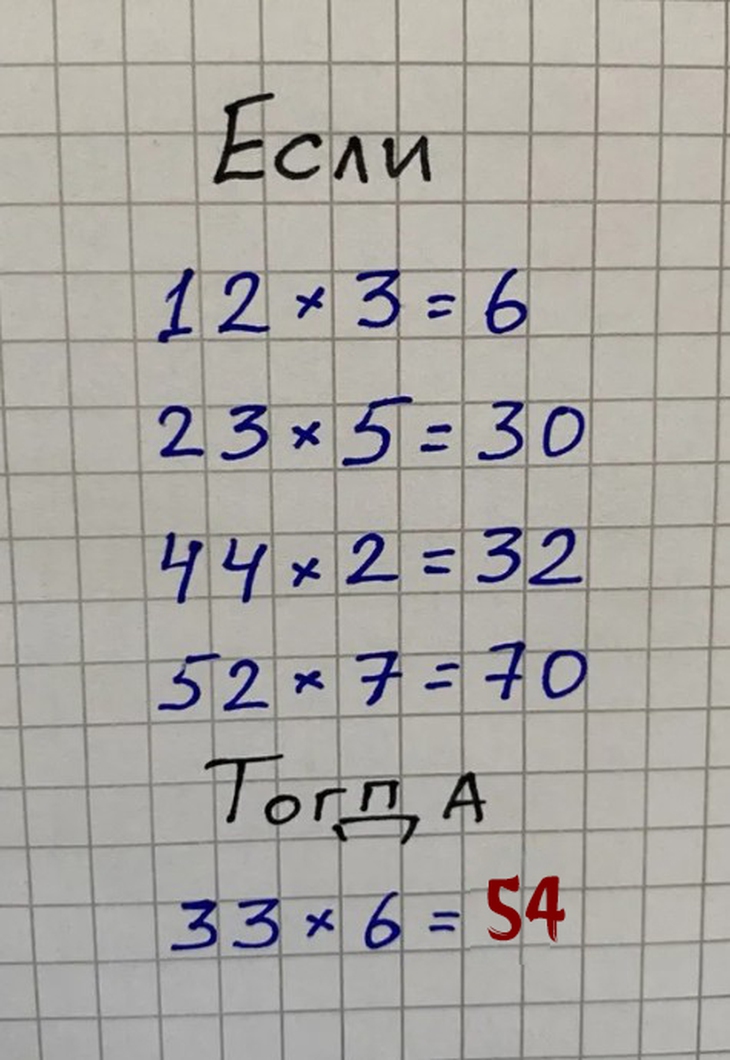 Если
12 × 3 = 6
23 × 5 = 30
44 × 2 = 32
52 × 7 = 70
ТогдА
33 × 6 = 54